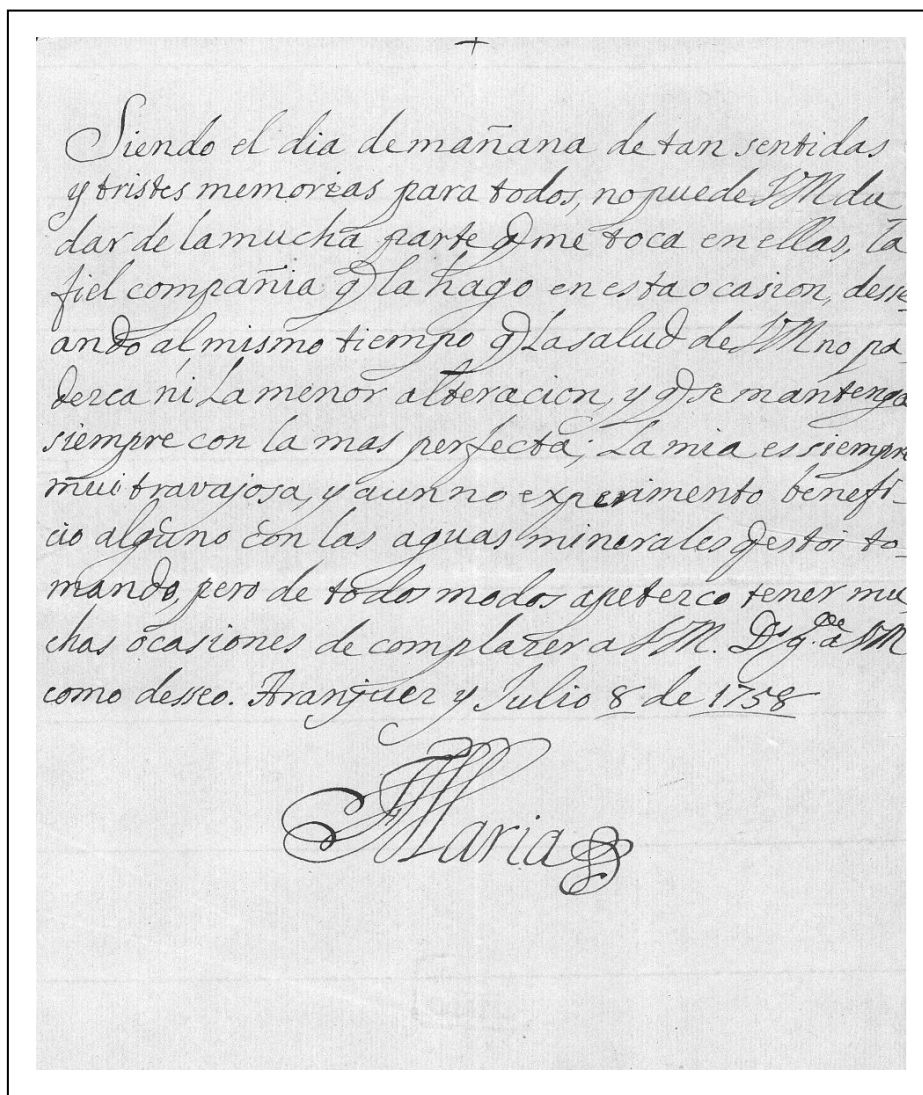 Siendo el dia de mañana de tan sentidas
y tristes memorias para todos, no puede VM du
dar de la mucha parte q me toca en ellas, la
fiel compañia q la hago en esta ocasion, desse-
ando al mismo tiempo q La salud de VM no pa-
dezca ni La menor alteracion, y q se mantenga
siempre con la mas perfecta; La mia es siempre
mui travajosa, y aun no experimento benefi-
cio alguno con las aguas minerales q estoi to-
mando, pero de todos modos apetezco tener mu
chas ocasiones de complazer a VM. Ds g.de a VM
como desseo. Aranjuez y Julio 8 de 1758
Maria